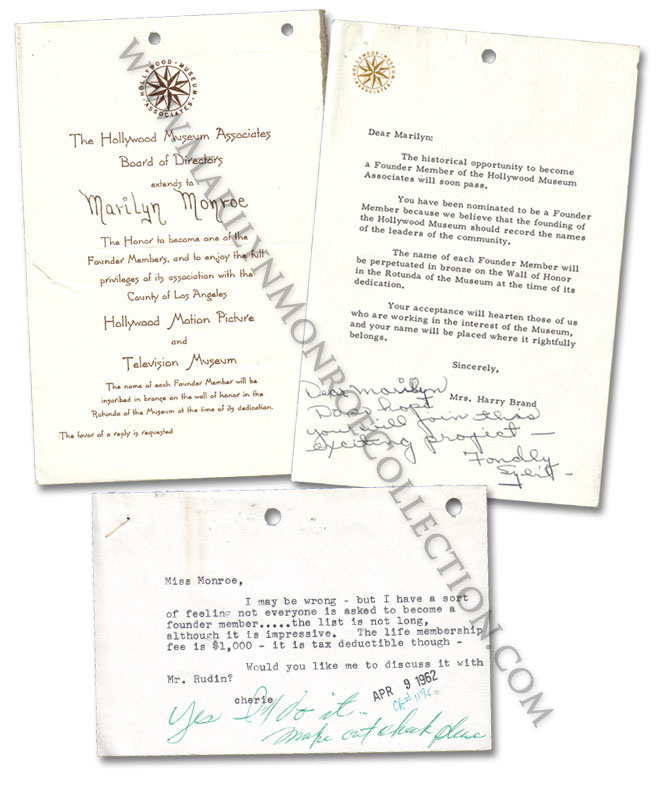 HOLLYWOOD · MUSEUM ASSOCIATES
The Hollywood Museum Associates
Board of Directors
extends to
Marilyn Monroe
The Honor to become one of the
Founder Members, and to enjoy the full
privileges of its association with the
County of Los Angeles
Hollywood Motion Picture
and
Television Museum
The name of each Founder Member will be
inscribed in bronze on the wall of honor in the
Rotunda of the Museum at the time of its dedication.
The favor of a reply is requested
HOLLYWOOD · MUSEUM ASSOCIATES
Dear Marilyn:
The historical opportunity to become
a Founder Member of the Hollywood Museum
Associates will soon pass.
You have been nominated to be a Founder
Member because we believe that the founding of
the Hollywood Museum should record the names
of the leaders of the community.
The name of each Founder Member will
be perpetuated in bronze on the Wall of Honor
in the Rotunda of the Museum at the time of its
dedication.
Your acceptance will hearten those of us
who are working in the interest of the Museum,
and your name will be placed where it rightfully
belongs.
Sincerely,
Mrs. Harry Brand
Dear Marilyn
Do so hope
you will join this
exciting project —
Fondly
Miss Monroe,
I may be wrong - but I have a sort
of feeling not everyone is asked to become a
founder member.....the list is not long,
although it is impressive. The life membership
fee is $1,000 - it is tax deductible though -
Would you like me to discuss it with
Mr. Rudin?
cherie
APR 9 1962
Yes I'll do it —
make out check please
WWW.MARILYNMONROECOLLECTION.COM